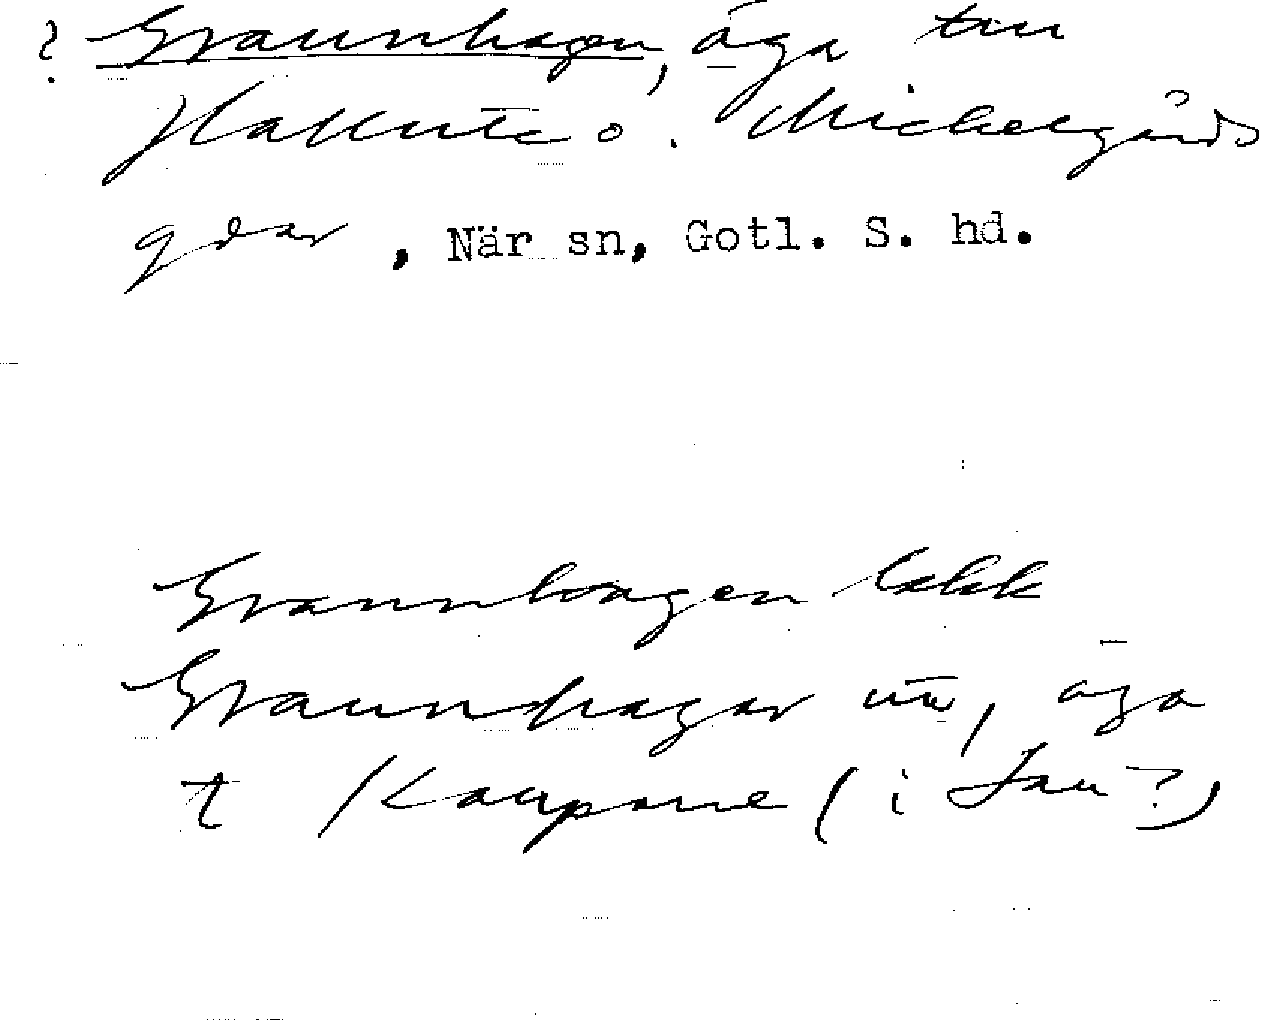 ? Graunhagen, äga till
Hallute o. Michelgårds
gdar, När sn, Gotl. S. hd.
Graunhagen
Graunhagar, äga
t Kaupane (i Lau?)